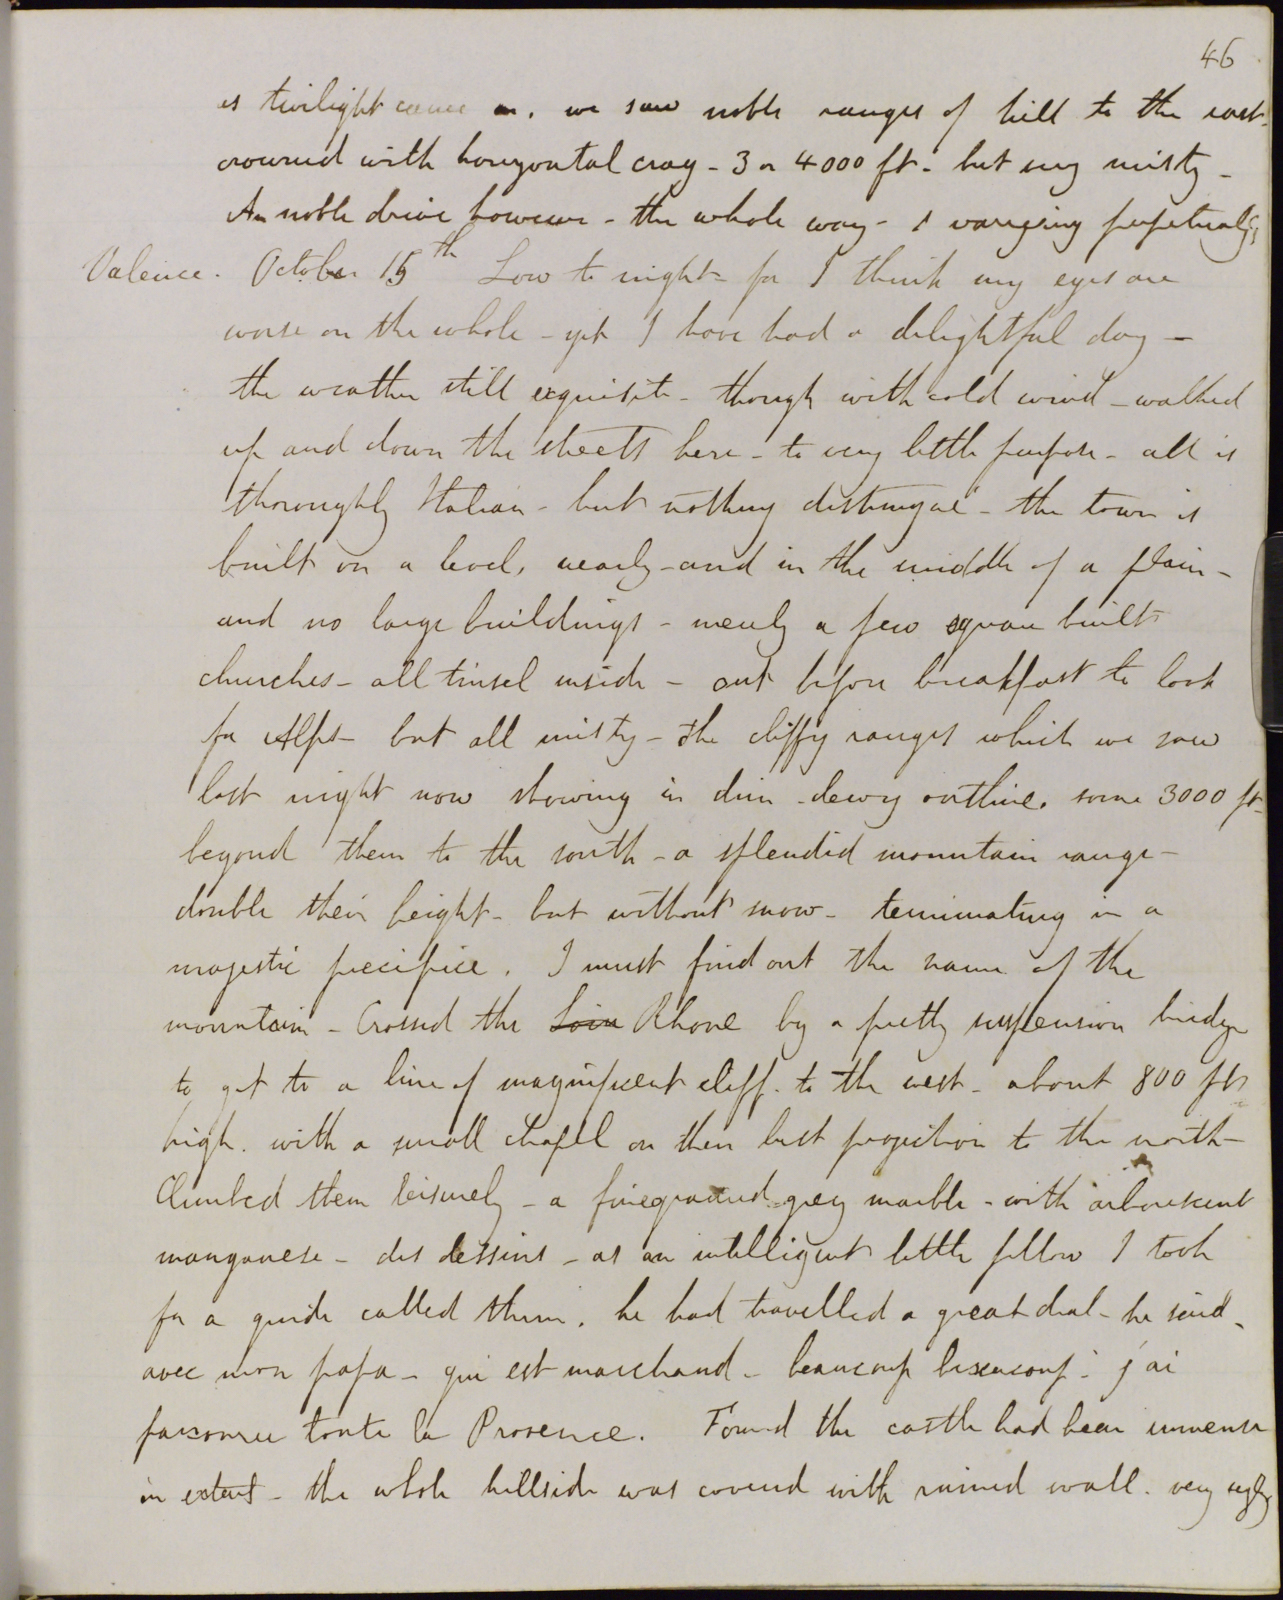 46
as twilight came on. we saw noble ranges of hill to the east-
crowned with horizontal crag - 3 or 4000 ft - but very misty -
A noble drive however - the whole way - & varying perpetually
Valence. October 15th Low to night - for I think my eyes are
worse on the whole - yet I have had a delightful day -
the weather still exquisite - though with cold wind - walked
up and down the streets here - to very little purpose - all is
thoroughly Italian - but nothing distingué - the town is
built on a level, nearly - and in the middle of a plain -
and no large buildings - merely a few square built
churches - all tinsel inside - out before breakfast to look
for Alps - but all misty - the cliffy ranges which we saw
last night now showing in dim dewy outline. some 3000 ft -
beyond them to the south - a splendid mountain range -
double their height - but without snow - terminating in a
majestic precipice. I must find out the name of the
mountain - Crossed the Loire Rhone by a pretty suspension bridge
to get to a line of magnificent cliff. to the west - about 800 ft
high. with a small chapel on their last projection to the north -
Climbed them leisurely - a finegrained grey marble - with arborescent
manganese - des dessins - as an intelligent little fellow I took
for a guide called them. he had travelled a great deal - he said -
avec mon papa - qui est marchand - beaucoup beaucoup - j'ai
parcouru toute la Provence. Found the castle had been immense
in extent - the whole hillside was covered with ruined wall. very ugly